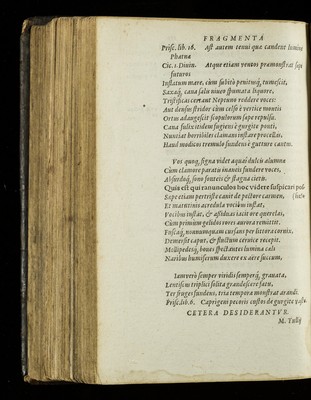 FRAGMENTA
Prisc. lib. 16. Ast autem tenui quae candent lumine
Phatnae
Cic. 1 Divin. Atque etiam ventos praemonstrat saepe
futuros
Inflatum mare, cùm subitò penitusq́; tumescit,
Saxaq́; cana salis niueo spumata liquore,
Tristificas certant Neptuno reddere voces:
Aut densus stridor cùm celso è vertice montis
Ortus adaugescit scopulorum saepe repulsu.
Cana fulix itidem fugiens è gurgite ponti,
Nuntiat horribiles clamans instare procellas,
Haud modicos tremulo fundens è gutture cantus.
Vos quoq; signa videt aquai dulcis alumnae
Cùm clamore paratis inaneis fundere voces,
Absurdoq́; sono fonteis & stagna cietis.
Quis est qui ranunculos hoc videre suspicari possit
Saepe etiam pertriste canit de pectore carmen,
Et matutinis acredula vocibus instat,
Vocibus instat, & assiduas iacit ore querelas,
Cùm primùm gelidos rores aurora remittit.
Fuscaq́; nonnunquam cursans per littora cornix,
Demersit caput, & fluctum cervice recepit.
Mollipedesq́; boues spectantes lumina caeli
Naribus humiferum duxere ex aëre succum.
Iamverò semper viridis semperq́; grauata,
Lentiscus triplici solita grandescere fœtu,
Ter fruges fundens, tria tempora monstrat arandi.
Prisc. lib. 6. Caprigeni pecoris custos de gurgite vasto
CETERA DESIDERANTVR.
M. Tullij